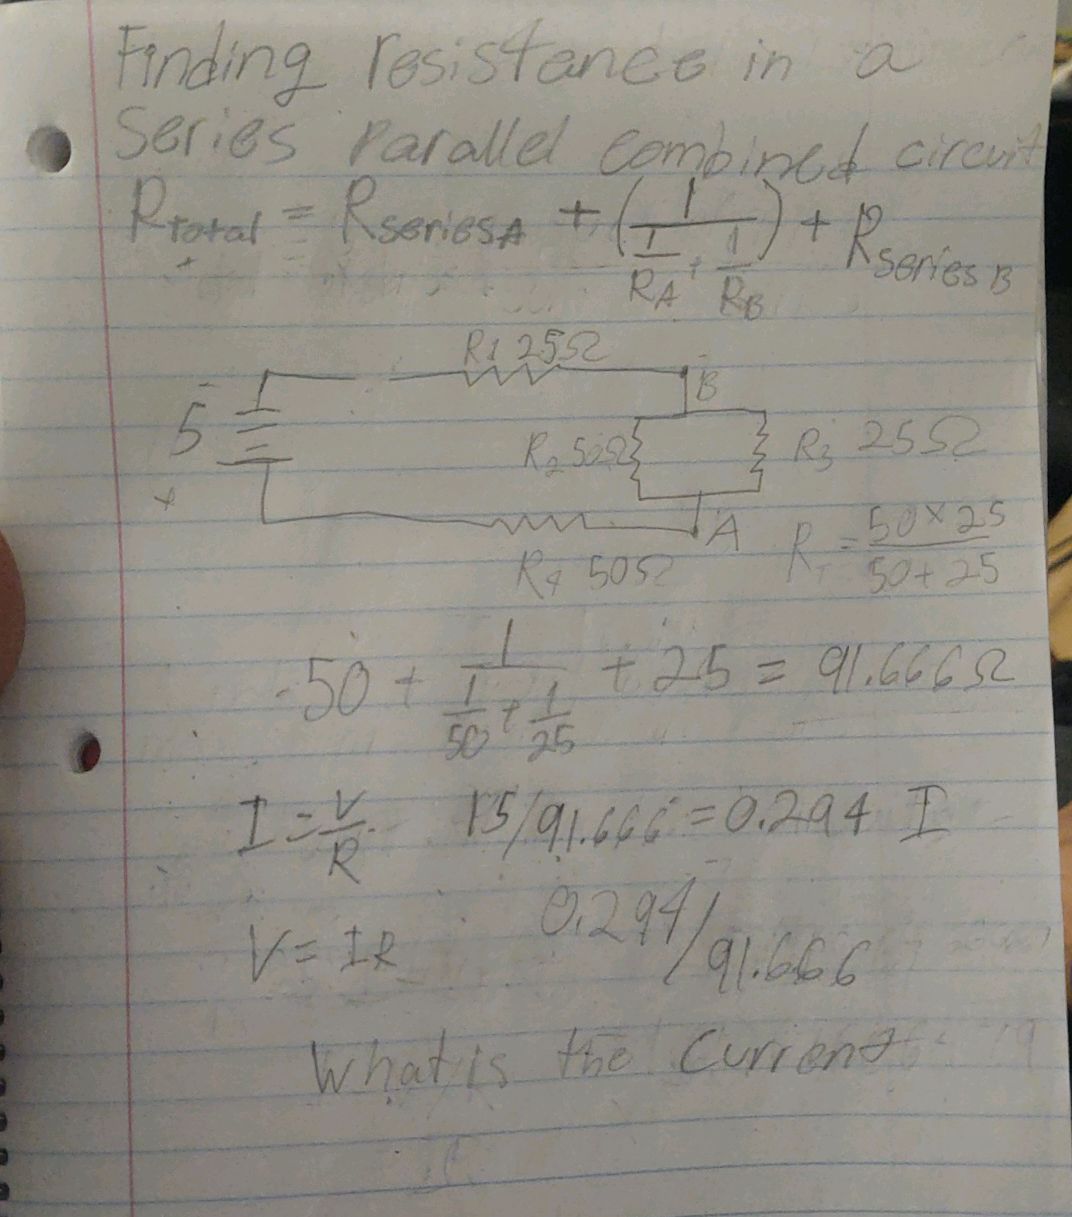 Finding resistance in a
Series Parallel combined circuit
R total = R series A + (1 / (1/RA + 1/RB)) + R series B
R1 25Ω
- B
5
R2 50Ω R3 25Ω
+
A
R4 50Ω RT = 50×25 / 50+25
50 + 1 / (1/50 + 1/25) + 25 = 91.666Ω
I = V/R 15/91.666 = 0.294 I
V = IR 0.294/91.666
What is the Current